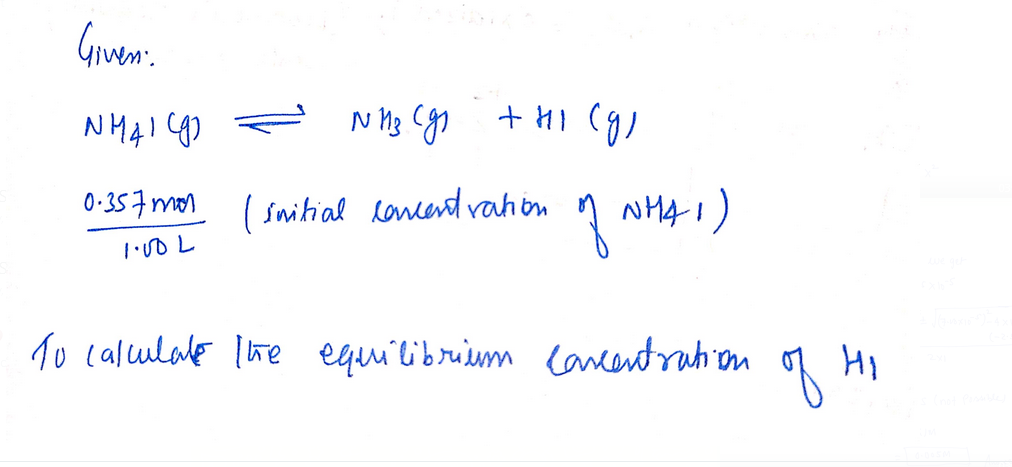 Given:
NH4I (g) ⇌ NH3 (g) + HI (g)
0.357 mol (initial concentration of NH4I)
1.00 L
To calculate the equilibrium concentration of HI